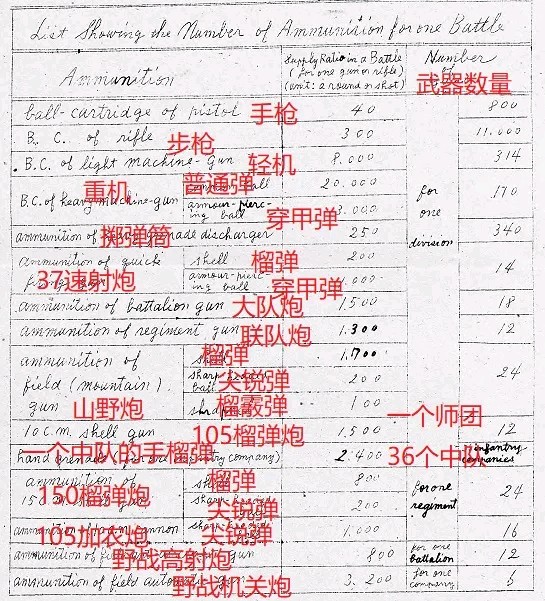 List Showing the Number of Ammunition for one Battle
Ammunition
Supply Ratio in a Battle
(for one gun or rifle)
(unit: a round or shot)
Number
武器数量
ball-cartridge of pistol 手枪 40 800
B. C. of rifle 步枪 300 11.000
B.C. of light machine-gun 轻机 8.000 314
重机 普通弹 ball 20.000
B.C. of heavy machine-gun armour-pierc-ing ball 穿甲弹 3.000 for one division 170
ammunition of 掷弹筒 discharger 250 340
ammunition of quick shell 榴弹 200
37速射炮 armour-pierc-ing ball 穿甲弹 14
ammunition of battalion gun 大队炮 1.500 18
ammunition of regiment gun 联队炮 1.300 12
ammunition of 榴弹 1.700
field (mountain) ball 尖锐弹 200 24
gun 山野炮 榴霰弹 100 一个师团
10 c.m. shell gun 105榴弹炮 1.500 12
一个中队的手榴弹 company) 2.400 36个中队 infantry companies
ammunition of 榴弹 800
150榴弹炮 尖锐弹 200 for one regiment 24
105加农炮 cannon 尖锐弹 1.000 16
ammunition of 野战高射炮 gun 800 for one battalion 12
ammunition of field 野战机关炮 3.200 for one company 6